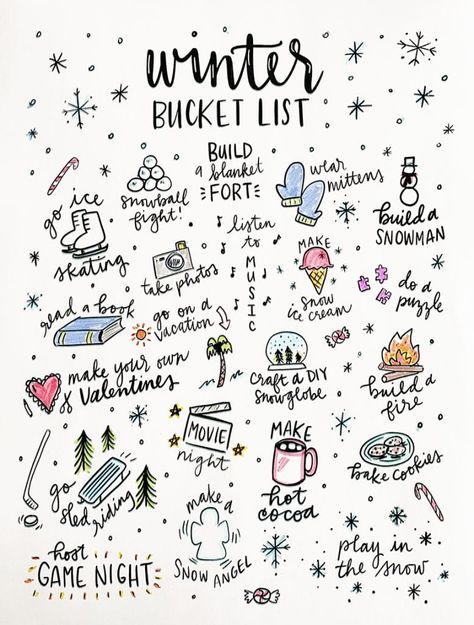 winter
BUCKET LIST
go ice
skating
snowball
fight!
BUILD
a blanket
FORT
wear
mittens
build a
SNOWMAN
take photos
listen
to
MUSIC
MAKE
snow
ice cream
do a
puzzle
read a book
go on a
vacation
make your own
Valentines
craft a DIY
snowglobe
build a
fire
MOVIE
night
MAKE
hot
cocoa
bake cookies
go
sled
riding
make a
SNOW ANGEL
host
GAME NIGHT
play in
the snow